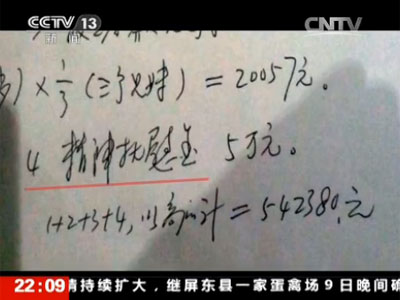 CCTV 13
新闻
CNTV
) × 1/3 (三兄妹) = 20057元。
4 精神抚慰金 5万元。
1+2+3+4, 以高计 = 542380元
22:09 情持续扩大，继屏东县一家蛋禽场9日晚间确